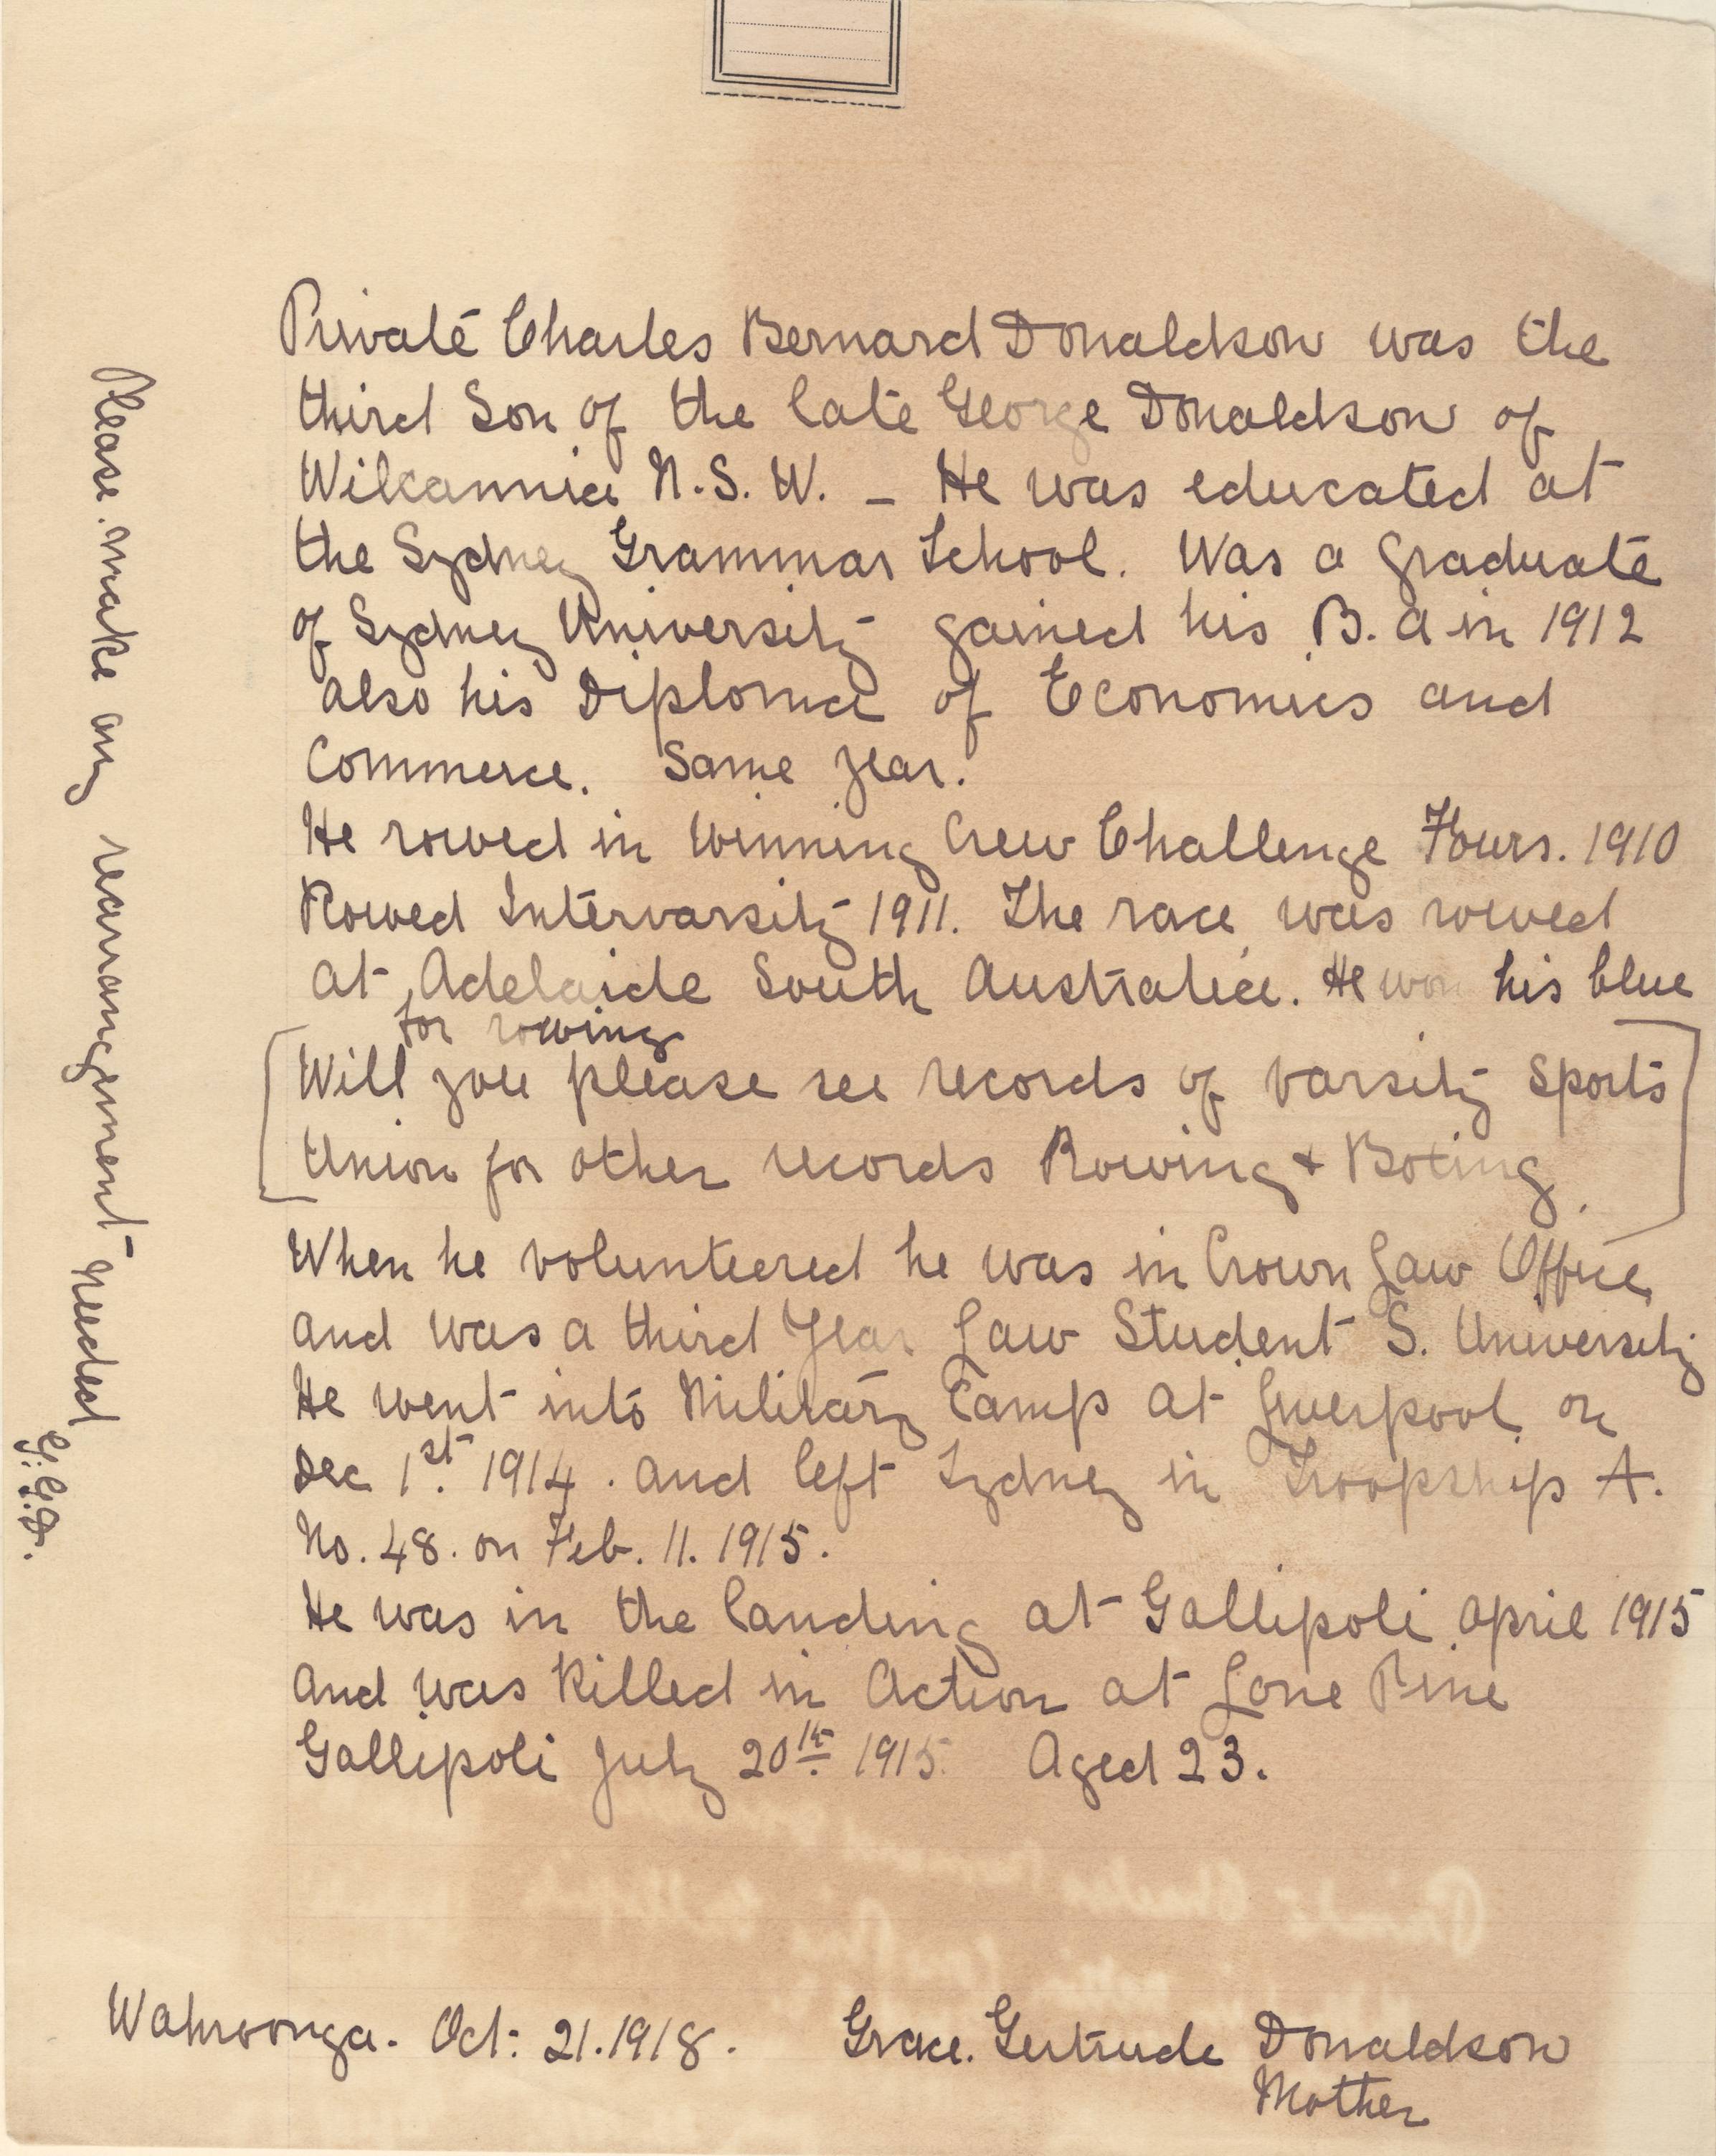 Private Charles Bernard Donaldson was the
third Son of the late George Donaldson of
Wilcannia N.S.W. - He was educated at
the Sydney Grammar School. Was a graduate
of Sydney University gained his B. A in 1912
also his Diploma of Economics and
Commerce. Same year.
He rowed in winning Crew Challenge Fours. 1910
Rowed Intervarsity 1911. The race was rowed
at Adelaide South Australia. He won his blue
for rowing
[Will you please see records of Varsity Sports
Union for other records Rowing + Boxing.]
When he volunteered he was in Crown Law Office
and was a third Year Law Student S. University
He went into Military Camp at Liverpool on
Dec 1st. 1914. and left Sydney in Troopship A.
No. 48. on Feb. 11. 1915.
He was in the landing at Gallipoli April 1915
and was Killed in Action at Lone Pine
Gallipoli July 20th 1915. Aged 23.
Wahroonga. Oct: 21.1918. Grace. Gertrude Donaldson
Mother
Please make any rearrangement needed
G.G.D.